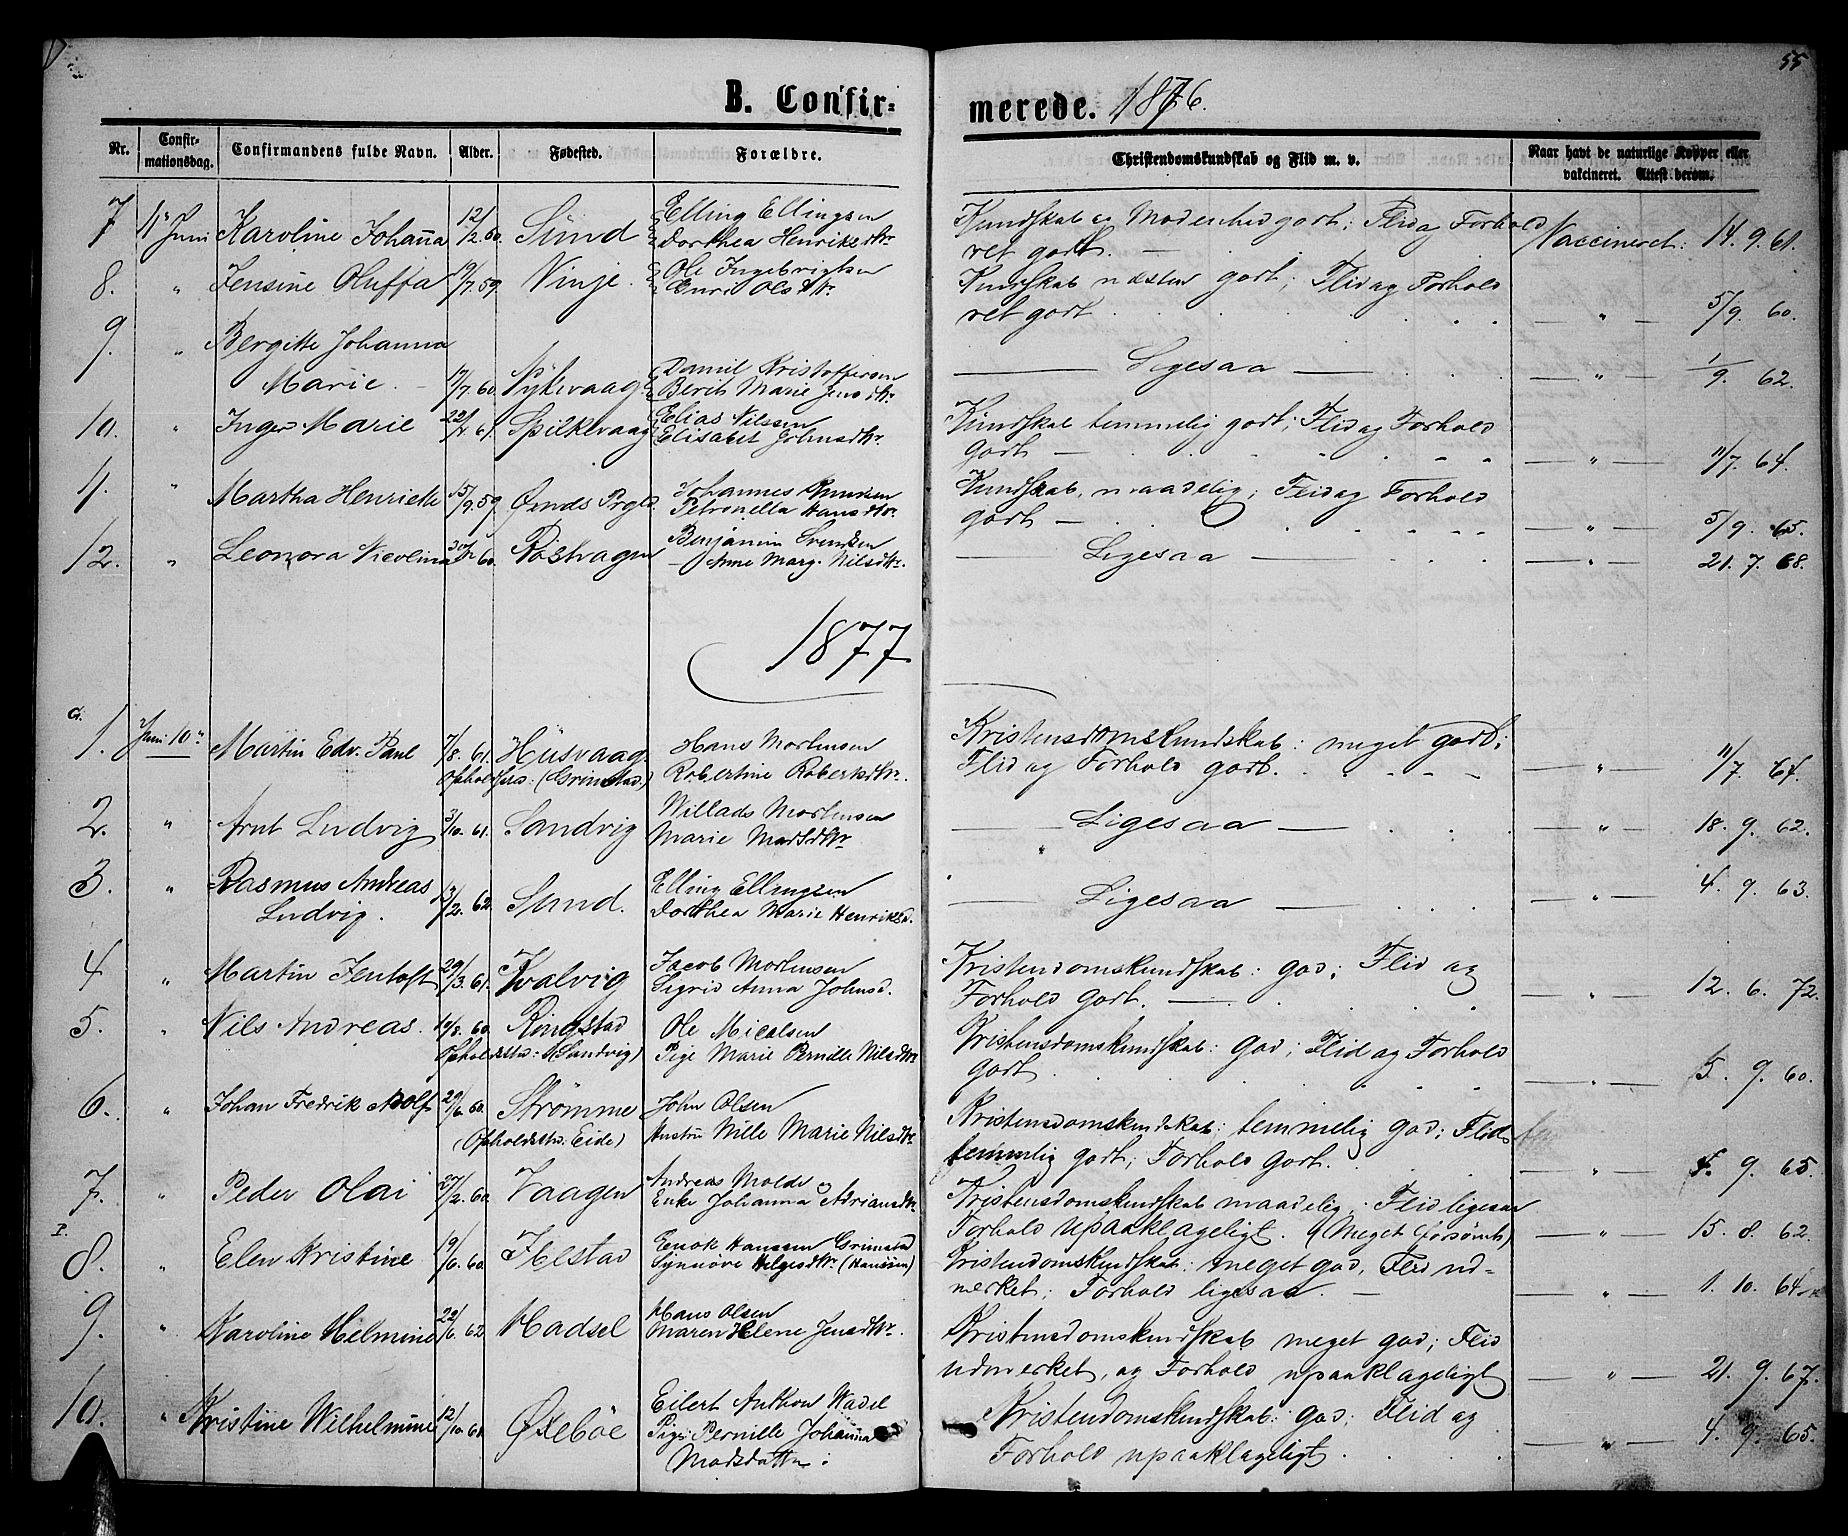 55
B. Confirmerede. 1876.
Nr. Confirmationsdag. Confirmandens fulde Navn. Alder. Fødested. Forældre. Christendomskundskab og Flid m. v. Naar havt de naturlige Kopper eller vakcineret. Attest derom.
7 11" Juni Karoline Johanna 12/2. 60. Sund Elling Ellingsen Kundskab og Modenhed godt; Flid og Forhold Vaccineret: 14. 9. 61.
Dorthea Henriksdtr. ret godt. —
8. " Jensine Oluffa 19/7. 59. Vinje. Ole Ingebrigtsen Kundskab næsten godt; Flid og Forhold
Olsdtr. ret godt — " — 5/9. 60.
9. " Bergitte Johanna
Marie. 17/7. 60. Nykvaag Daniel Kristoffersen — Ligesaa — — " — 1/9. 62.
Berit Marie Jensdtr.
10. " Inger Marie 22/ 61. Spilkevaag Elias Nilssen Kundskab temmelig godt; Flid og Forhold
Elisabet Johnsdtr. godt — — " — 11/7. 64.
11. " Martha Henriette 15/9. 59. Øxnds Prgld. Johannes Knudsen Kundskab, maadelig; Flid og Forhold
Petronella Hansdtr. godt — — " — 5/9. 65.
12. " Leonora Nicolina 60. Røsvagen Benjamin Svendsen — Ligesaa — — " — 21. 7. 68.
Anne Marg. Nilsdtr.
1877
G. 1. Juni 10" Martin Edv. Paul 7/8. 61. Husvaag Hans Mortensen Kristensdomskundskab: meget godt;
Opholdssd: (Grimstad) Robertine Robertsdtr. Flid og Forhold godt. — " — 11/7. 64.
2. " Arnt Ludvig 3/10. 61. Sandvig Willads Mortensen — Ligesaa — — " — 18. 9. 62.
Marie Madsdtr
3. " Rasmus Andreas 13/2. 62. Sund. Elling Ellingsen — Ligesaa — — " — 4. 9. 63.
Ludvig. Dorthea Marie Henriksd.
4 " Martin Jentoft 29/3. 61. Kvalvig Jacob Mortensen Kristendomskundskab: god; Flid og
Sigrid Anna Johnsd. Forhold godt. — — " — 12. 6. 72.
5. " Nils Andreas. 19/8. 60. Ringstad Ole Micalsen Kristensdomskundskab: god; Flid og Forhold
Opholdssted: (Sandvig) Pige Marie Pernille Nilsdtr godt. — " — 5. 9. 60.
6. " Johan Fredrik Adolf 29/6. 60. Strømme John Olsen Kristensdomskundskab: temmelig god; Flid
(Opholdssted: Eide) Hustru Wille Marie Nilsdtr. temmelig godt; Forhold godt. — " — 4. 9. 65.
7. " Peder Olai 27/2. 60. Vaagen Andreas Molds og Kristensdomskundskab maadelig; Flid ligesaa
Enke Johanna Adriansdtr Forhold upaaklageligt. (Meget forsømt) — " — 15. 8. 62.
P. 8. " Elen Kristine 19/6. 60. Jelstad Enok Hanssen Grimstad Kristendomskundskab: meget god, Flid ud-
Synnøve Helgesdtr. (Hanssen) merket; Forhold ligesaa. — — " — 1. 10. 64
9. " Karoline Helmine 22/6. 62. Hadsel Hans Olsen Kristensdomskundskab meget god; Flid
Maren Helene Jensdtr. udmerket, og Forhold upaaklageligt — " — 21. 9. 67.
10. " Kristine Wilhelmine 12/10. 60. Øxebøe Eilert Anthon Wadel Kristendomskundskab: god; Flid og
Pige Pernille Johanna Forhold upaaklageligt. — " — 4. 9. 65.
Madsdatter